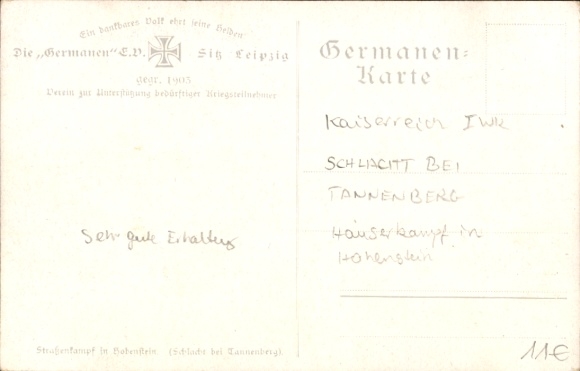 Ein dankbares Volk ehrt seine Helden
Die „Germanen“ E.V. Sitz Leipzig
gegr. 1905
Verein zur Unterstützung bedürftiger Kriegsteilnehmer
Germanen-
Karte
Kaiserreich I WK
SCHLACHT BEI
TANNENBERG
Häuserkampf in
Hohenstein
Sehr gute Erhaltung
Straßenkampf in Hohenstein. (Schlacht bei Tannenberg).
11€